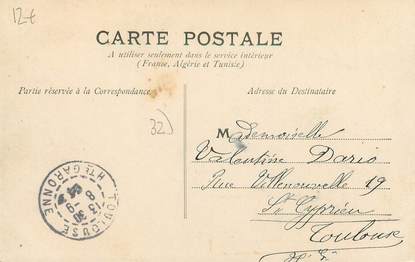 12€
CARTE POSTALE
A utiliser seulement dans le service intérieur
(France, Algérie et Tunisie)
Partie réservée à la Correspondance
Adresse du Destinataire
32)
Mademoiselle
Valentine Dario
Rue Villenouvelle 19
St Cyprien
Toulouse
TOULOUSE
HTE GARONNE